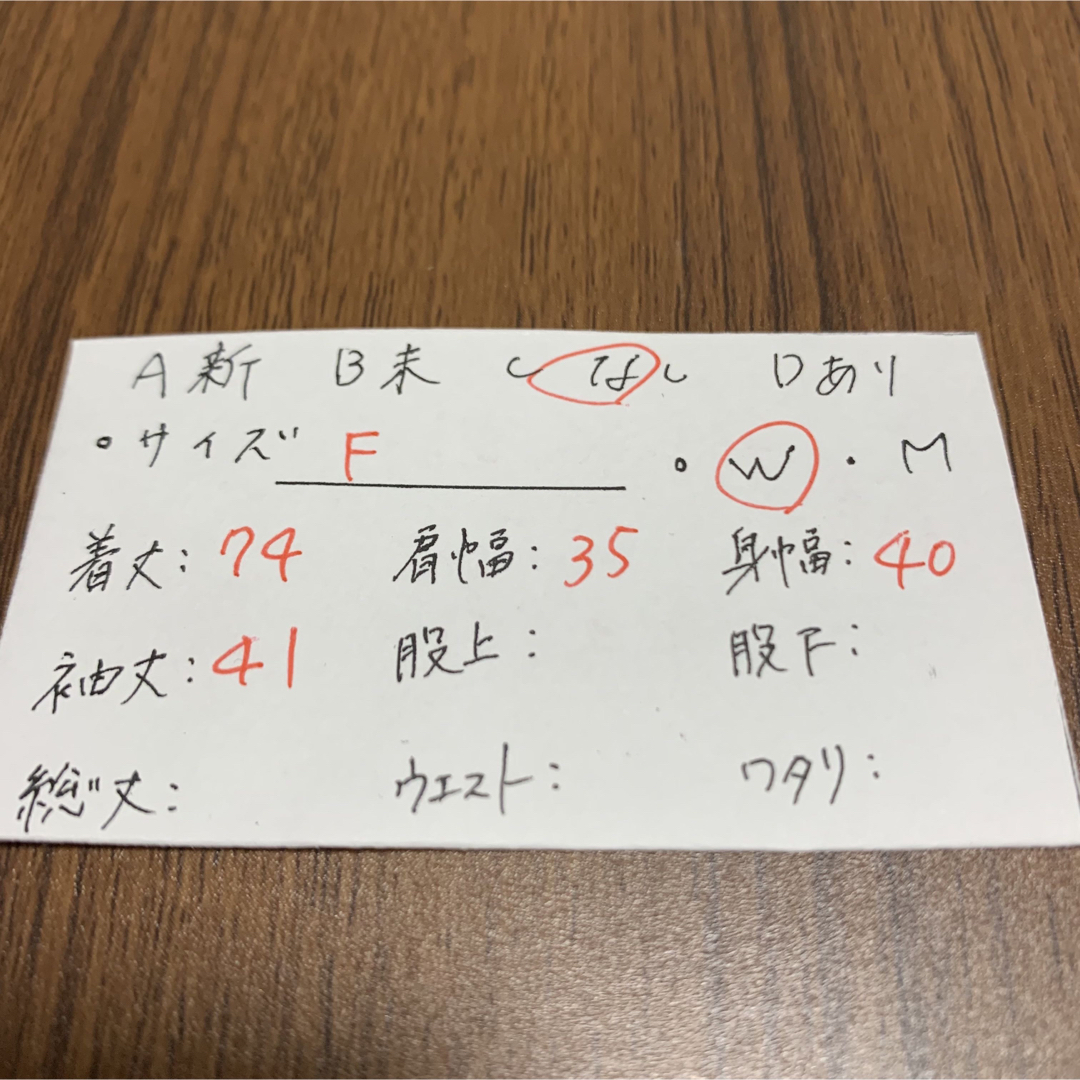 A新 B未 Cなし Dあり
・サイズ F ・W・M
着丈：74 肩幅：35 身幅：40
袖丈：41 股上： 股下：
総丈： ウエスト： ワタリ：